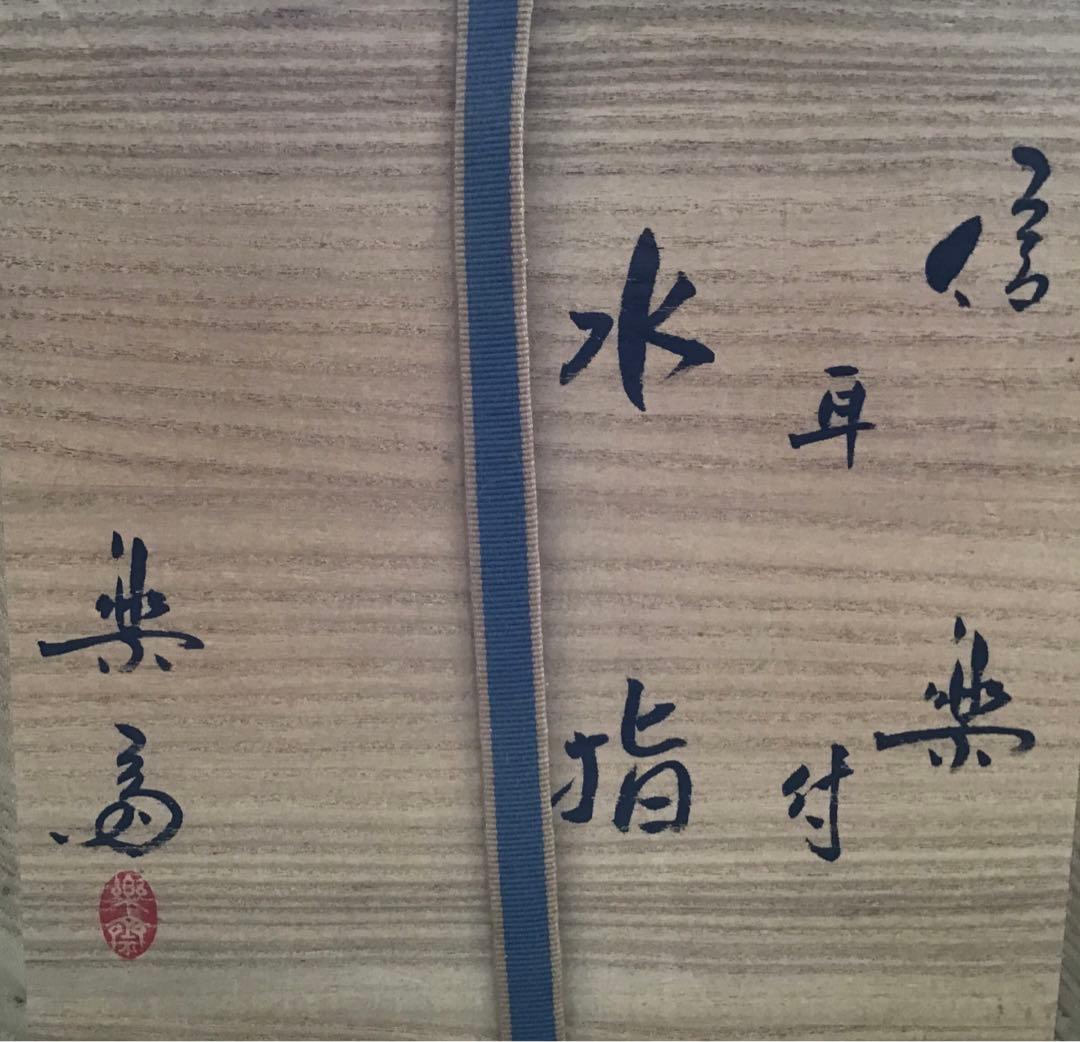 信楽
耳付
水指
楽斎
樂齋